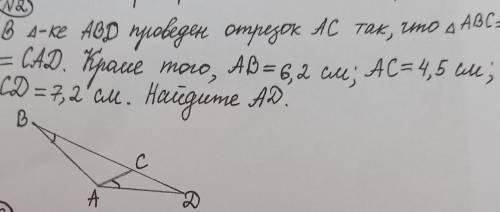 N2
В Δ-ке ABD проведен отрезок AC так, что ΔABC=
= CAD. Кроме того, AB=6,2 см; AC=4,5 см;
CD=7,2 см. Найдите AD.
B
C
A
D